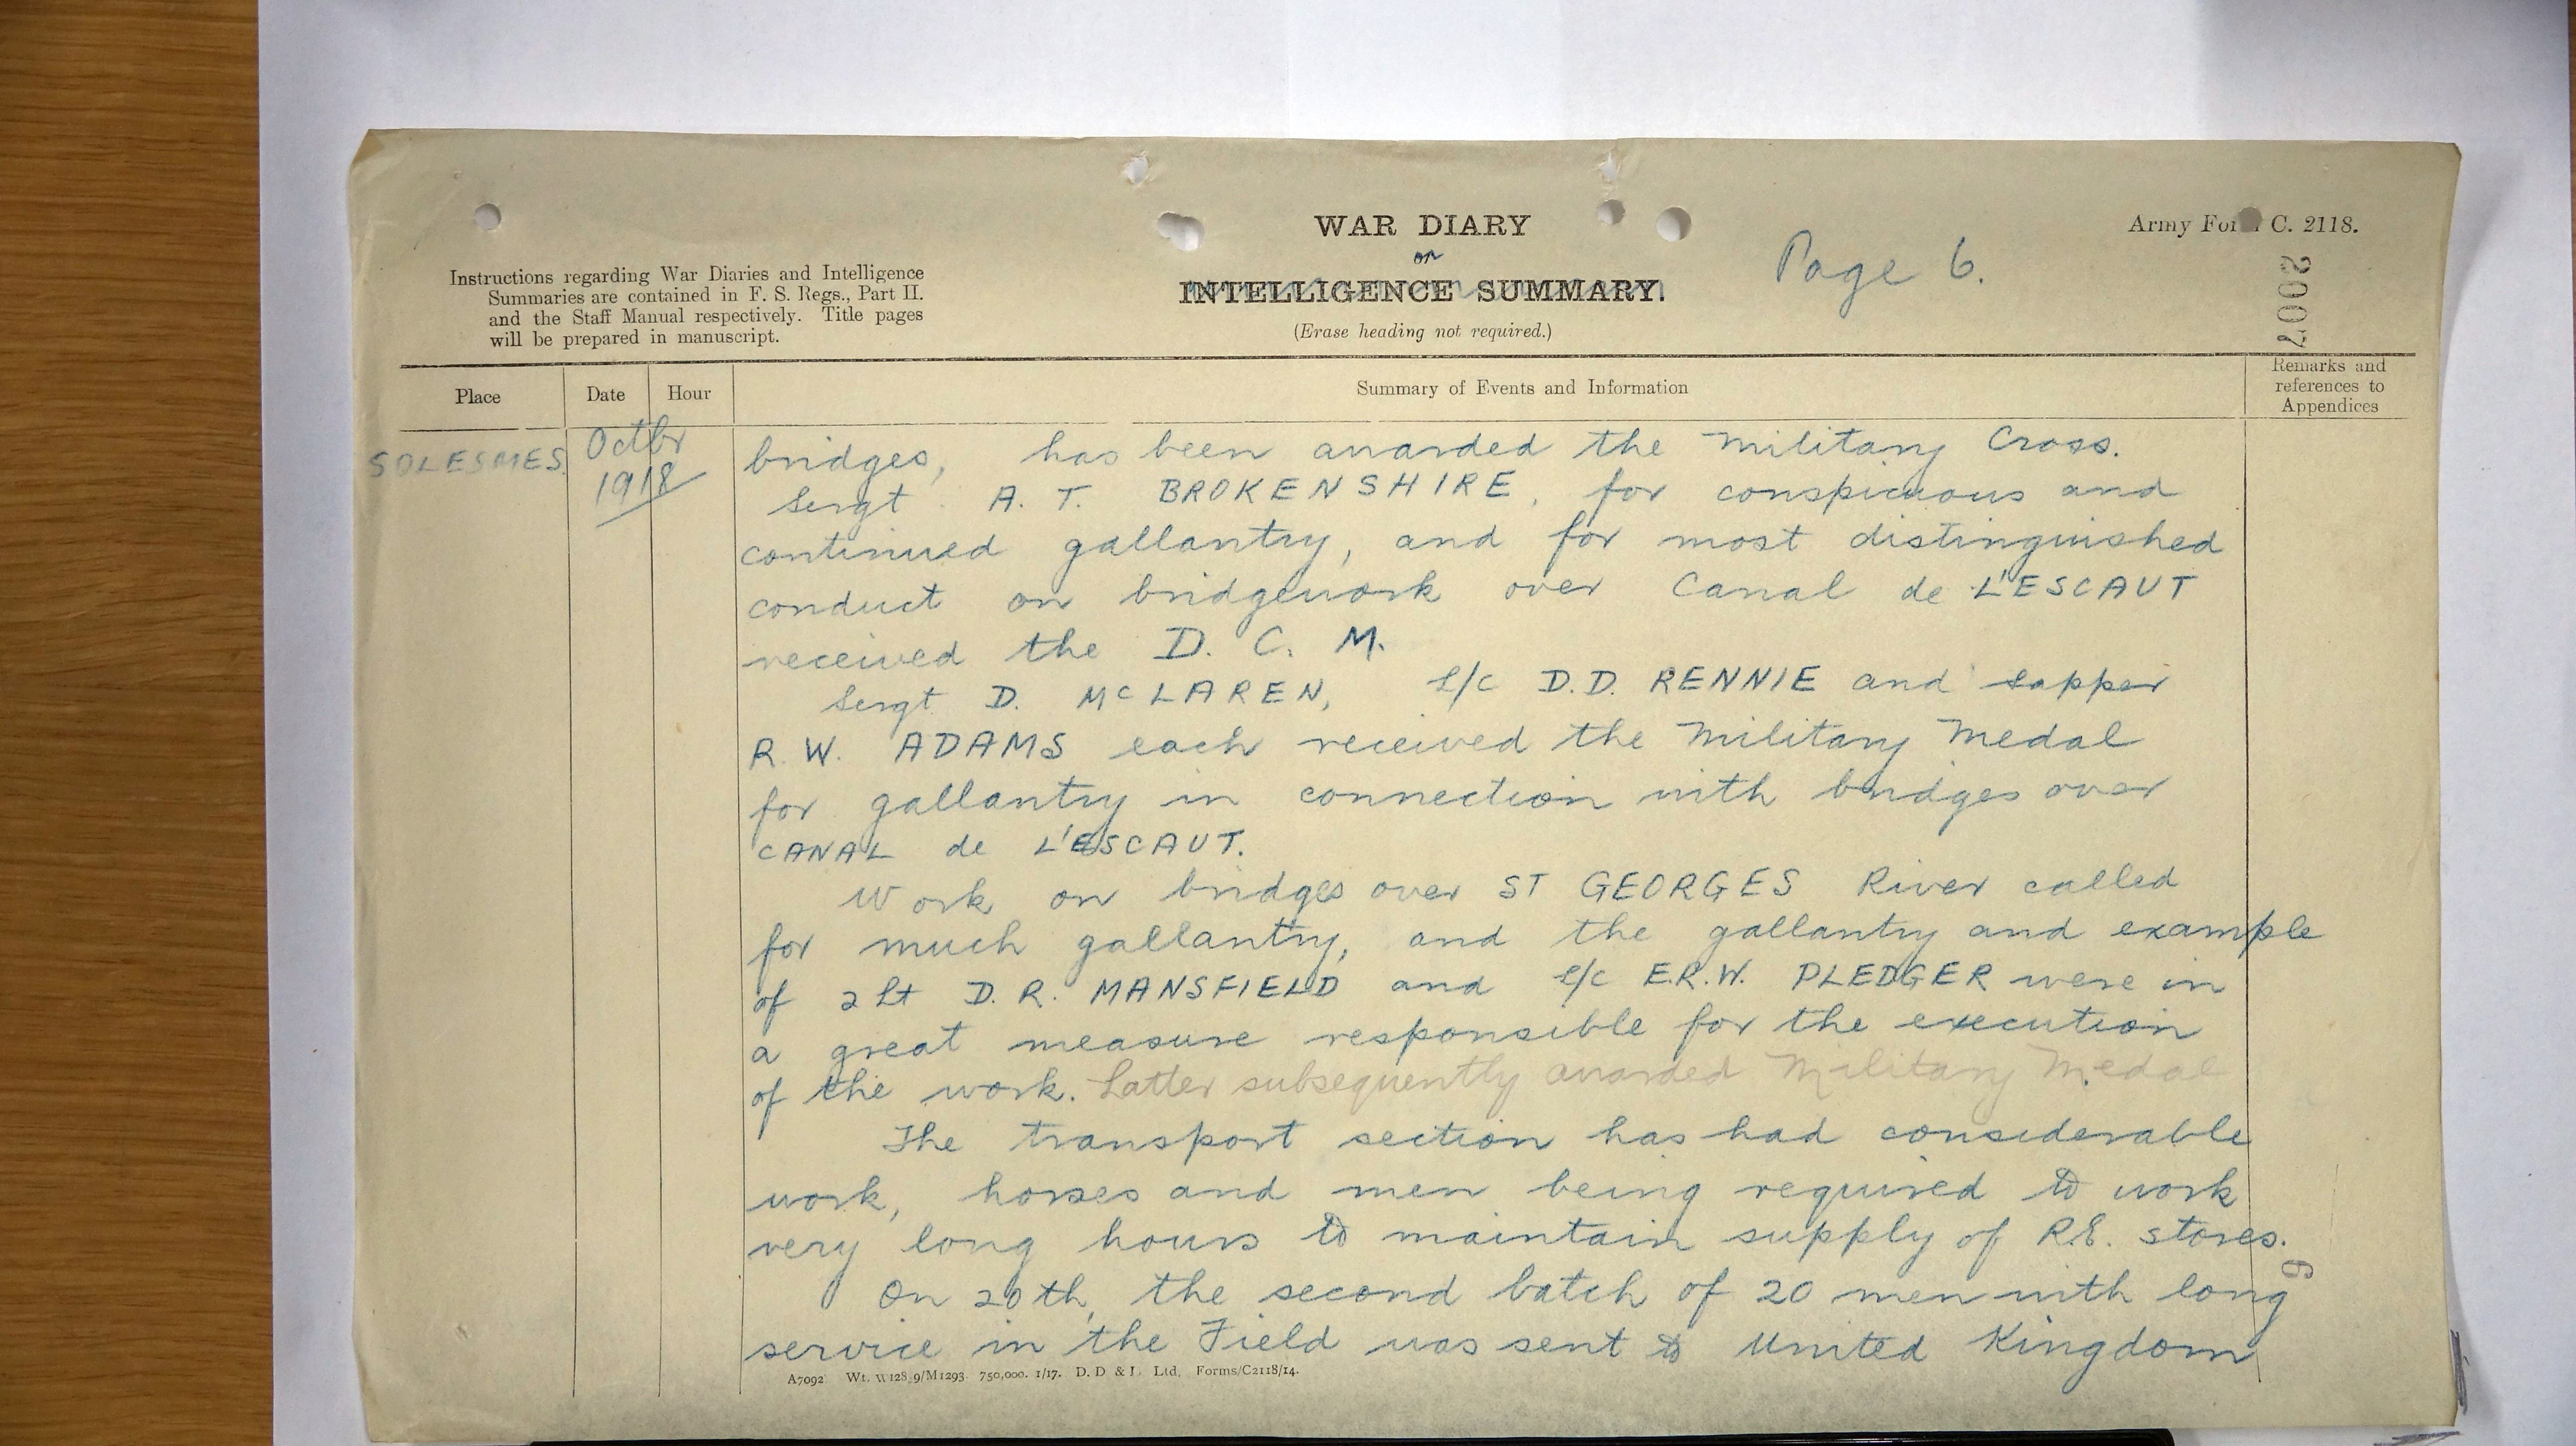 WAR DIARY
or
INTELLIGENCE SUMMARY.
(Erase heading not required.)
Page 6.
Army For C. 2118.
2007
Instructions regarding War Diaries and Intelligence
Summaries are contained in F. S. Regs., Part II.
and the Staff Manual respectively. Title pages
will be prepared in manuscript.
Place Date Hour Summary of Events and Information
Remarks and
references to
Appendices
SOLESMES
Octbr
1918
bridges, has been awarded the Military Cross.
Sergt A. T. BROKENSHIRE, for conspicuous and
continued gallantry, and for most distinguished
conduct on bridgework over Canal de L'ESCAUT
received the D. C. M.
Sergt D. McLAREN, L/C D.D. RENNIE and sapper
R. W. ADAMS each received the Military Medal
for gallantry in connection with bridges over
CANAL de L'ESCAUT.
Work on bridges over ST GEORGES River called
for much gallantry, and the gallantry and example
of 2 Lt D. R. MANSFIELD and L/C E.R.W. PLEDGER were in
a great measure responsible for the execution
of the work. Latter subsequently awarded Military Medal
The transport section has had considerable
work, horses and men being required to work
very long hours to maintain supply of R.E. stores.
On 20th, the second batch of 20 men with long
service in the Field was sent to United Kingdom
6
A7092 Wt. W128.9/M1293 750,000. 1/17. D. D & L. Ltd. Forms/C2118/14.